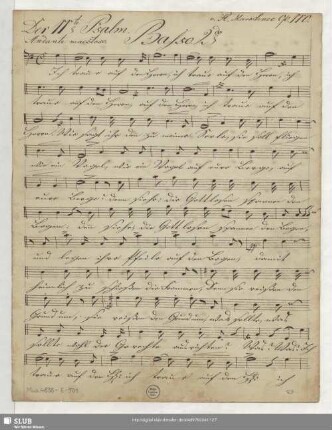 Der 11te Psalm.
Basso 2do
Andante maestoso
Ich trau auf den Herrn, ich trau auf den Herrn, ich
traue auf den Herrn, auf den Herrn, ich traue auf den
Herrn. Wie sagt ihr denn zu meiner Seele, sie soll fliegen
wie ein Vogel, wie ein Vogel auf eure Berge, auf
eure Berge: denn siehe: die Gottlosen spannen den
Bogen, denn siehe, die Gottlosen spannen den Bogen,
und legen ihre Pfeile auf die Sehnen, damit
heimlich zu schießen die Frommen, denn sie reißen den
Grund um, sie reißen den Grund um, was sollte, was
sollte wohl der Gerechte ausrichten?
traue auf den Herrn, ich traue auf den Herrn, ich
SLUB